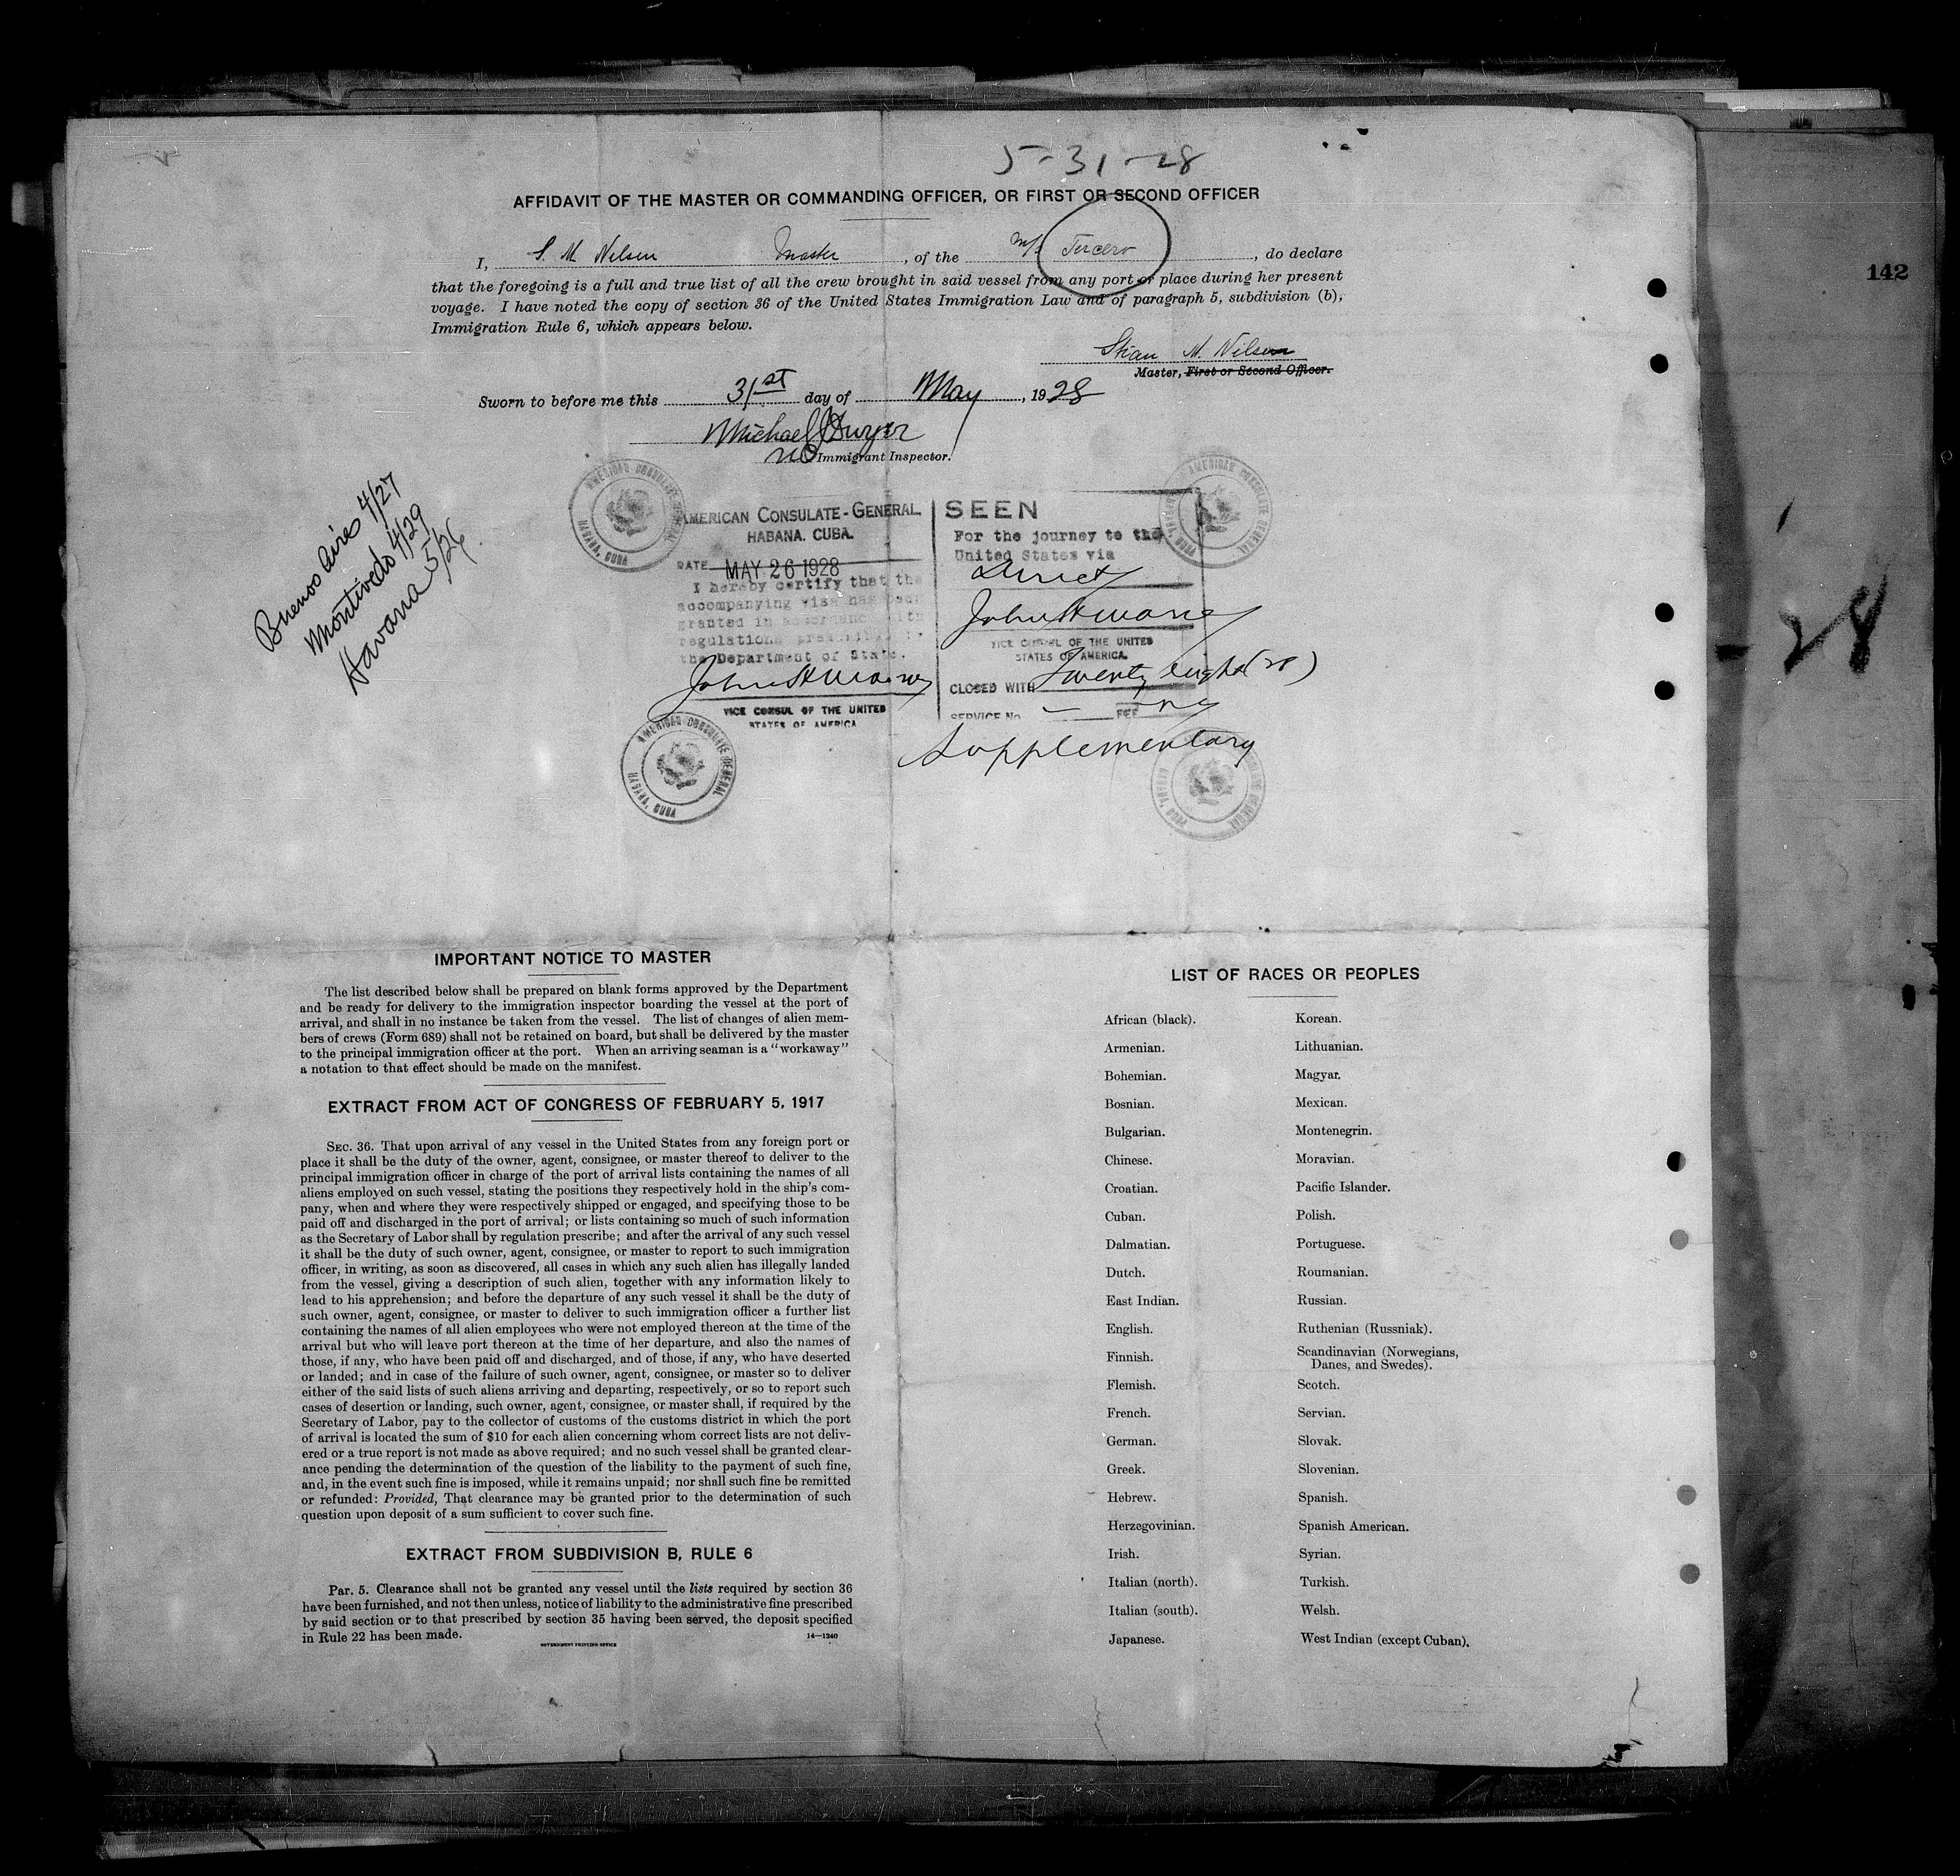 5-31-28
AFFIDAVIT OF THE MASTER OR COMMANDING OFFICER, OR FIRST OR SECOND OFFICER
I, S. M Nilsen Master, of the M/S Tercero, do declare
that the foregoing is a full and true list of all the crew brought in said vessel from any port or place during her present
voyage. I have noted the copy of section 36 of the United States Immigration Law and of paragraph 5, subdivision (b),
Immigration Rule 6, which appears below.
M. Nilsen
Master, First or Second Officer.
Sworn to before me this 31st day of May, 1928
Michael J Dwyer
Immigrant Inspector.
Buenos Aires 4/27
Montivedo 4/29
Havana 5/26.
AMERICAN CONSULATE-GENERAL
HABANA, CUBA
AMERICAN CONSULATE-GENERAL
HABANA. CUBA.
DATE MAY 26 1928
I hereby certify that the
accompanying visa has been
granted in accordance with
regulations prescribed by
the Department of State.
VICE CONSUL OF THE UNITED
STATES OF AMERICA
AMERICAN CONSULATE GENERAL
HABANA, CUBA
SEEN
For the journey to the
United States via
Direct
VICE CONSUL OF THE UNITED
STATES OF AMERICA.
CLOSED WITH Twenty eight (28)
SERVICE No. FEE
Supplementary
142
-28
IMPORTANT NOTICE TO MASTER
The list described below shall be prepared on blank forms approved by the Department
and be ready for delivery to the immigration inspector boarding the vessel at the port of
arrival, and shall in no instance be taken from the vessel. The list of changes of alien mem-
bers of crews (Form 689) shall not be retained on board, but shall be delivered by the master
to the principal immigration officer at the port. When an arriving seaman is a "workaway"
a notation to that effect should be made on the manifest.
EXTRACT FROM ACT OF CONGRESS OF FEBRUARY 5, 1917
SEC. 36. That upon arrival of any vessel in the United States from any foreign port or
place it shall be the duty of the owner, agent, consignee, or master thereof to deliver to the
principal immigration officer in charge of the port of arrival lists containing the names of all
aliens employed on such vessel, stating the positions they respectively hold in the ship's com-
pany, when and where they were respectively shipped or engaged, and specifying those to be
paid off and discharged in the port of arrival; or lists containing so much of such information
as the Secretary of Labor shall by regulation prescribe; and after the arrival of any such vessel
it shall be the duty of such owner, agent, consignee, or master to report to such immigration
officer, in writing, as soon as discovered, all cases in which any such alien has illegally landed
from the vessel, giving a description of such alien, together with any information likely to
lead to his apprehension; and before the departure of any such vessel it shall be the duty of
such owner, agent, consignee, or master to deliver to such immigration officer a further list
containing the names of all alien employees who were not employed thereon at the time of the
arrival but who will leave port thereon at the time of her departure, and also the names of
those, if any, who have been paid off and discharged, and of those, if any, who have deserted
or landed; and in case of the failure of such owner, agent, consignee, or master so to deliver
either of the said lists of such aliens arriving and departing, respectively, or so to report such
cases of desertion or landing, such owner, agent, consignee, or master shall, if required by the
Secretary of Labor, pay to the collector of customs of the customs district in which the port
of arrival is located the sum of $10 for each alien concerning whom correct lists are not deliv-
ered or a true report is not made as above required; and no such vessel shall be granted clear-
ance pending the determination of the question of the liability to the payment of such fine,
and, in the event such fine is imposed, while it remains unpaid; nor shall such fine be remitted
or refunded: Provided, That clearance may be granted prior to the determination of such
question upon deposit of a sum sufficient to cover such fine.
EXTRACT FROM SUBDIVISION B, RULE 6
Par. 5. Clearance shall not be granted any vessel until the lists required by section 36
have been furnished, and not then unless, notice of liability to the administrative fine prescribed
by said section or to that prescribed by section 35 having been served, the deposit specified
in Rule 22 has been made.
14—1240
GOVERNMENT PRINTING OFFICE
LIST OF RACES OR PEOPLES
African (black).
Armenian.
Bohemian.
Bosnian.
Bulgarian.
Chinese.
Croatian.
Cuban.
Dalmatian.
Dutch.
East Indian.
English.
Finnish.
Flemish.
French.
German.
Greek.
Hebrew.
Herzegovinian.
Irish.
Italian (north).
Italian (south).
Japanese.
Korean.
Lithuanian.
Magyar.
Mexican.
Montenegrin.
Moravian.
Pacific Islander.
Polish.
Portuguese.
Roumanian.
Russian.
Ruthenian (Russniak).
Scandinavian (Norwegians,
Danes, and Swedes).
Scotch.
Servian.
Slovak.
Slovenian.
Spanish.
Spanish American.
Syrian.
Turkish.
Welsh.
West Indian (except Cuban).